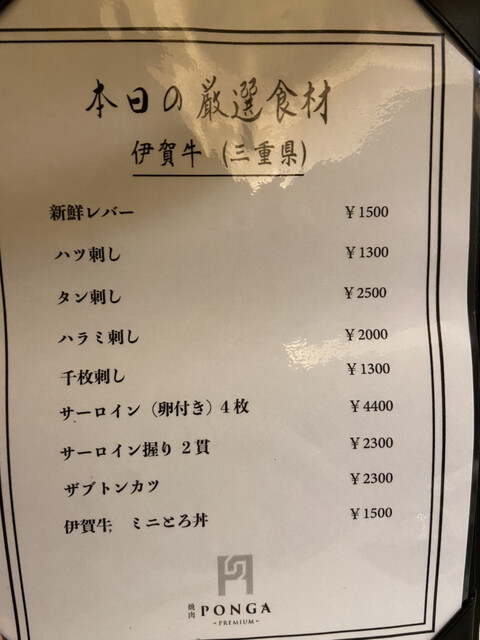 本日の厳選食材
伊賀牛 (三重県)
新鮮レバー ￥1500
ハツ刺し ￥1300
タン刺し ￥2500
ハラミ刺し ￥2000
千枚刺し ￥1300
サーロイン（卵付き）4枚 ￥4400
サーロイン握り 2貫 ￥2300
ザブトンカツ ￥2300
伊賀牛 ミニとろ丼 ￥1500
焼肉 PONGA
-PREMIUM-